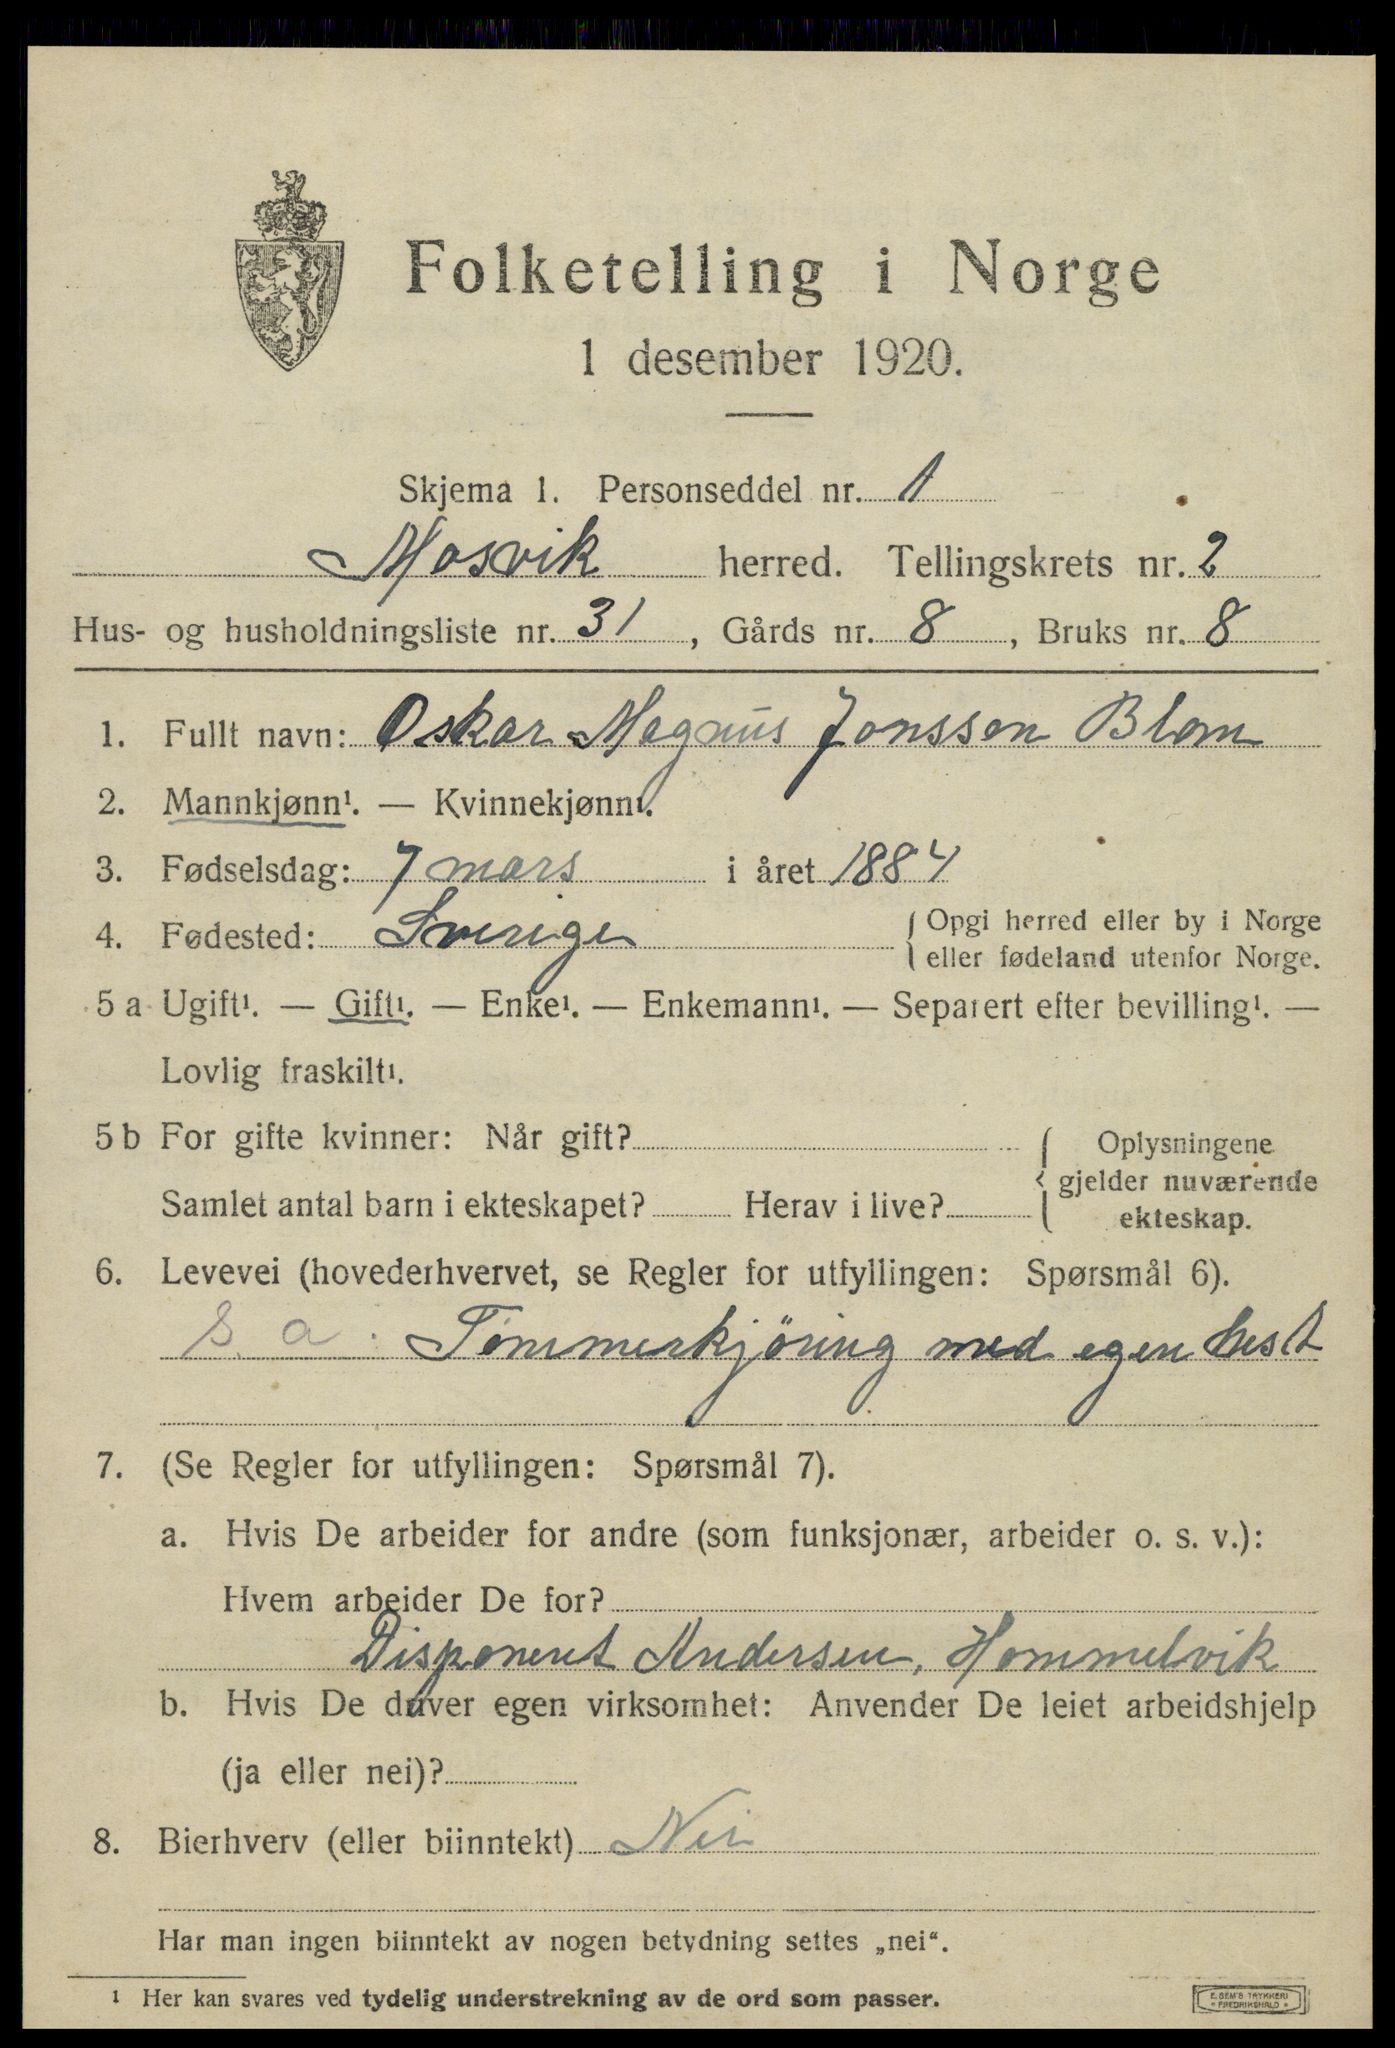 Folketelling i Norge
1 desember 1920.
Skjema 1. Personseddel nr. 1
Mosvik herred. Tellingskrets nr. 2
Hus- og husholdningsliste nr. 31, Gårds nr. 8, Bruks nr. 8
1. Fullt navn: Oskar Magnus Jonsson Blom
2. Mannkjønn¹. — Kvinnekjønn¹.
3. Fødselsdag: 7 mars i året 1884
4. Fødested: Sverige { Opgi herred eller by i Norge
eller fødeland utenfor Norge.
5 a Ugift¹. — Gift¹. — Enke¹. — Enkemann¹. — Separert efter bevilling¹. —
Lovlig fraskilt¹.
5 b For gifte kvinner: Når gift? { Oplysningene
gjelder nuværende
Samlet antal barn i ekteskapet? Herav i live? ekteskap.
6. Levevei (hovederhvervet, se Regler for utfyllingen: Spørsmål 6).
S. a. Tømmerkjöring med egen hest
7. (Se Regler for utfyllingen: Spørsmål 7).
a. Hvis De arbeider for andre (som funksjonær, arbeider o. s. v.):
Hvem arbeider De for?
Disponent Andersen, Hommelvik
b. Hvis De driver egen virksomhet: Anvender De leiet arbeidshjelp
(ja eller nei)?
8. Bierhverv (eller biinntekt) Nei
Har man ingen biinntekt av nogen betydning settes „nei“.
¹ Her kan svares ved tydelig understrekning av de ord som passer.
E. SEM'S TRYKKERI
* FREDRIKSHALD *